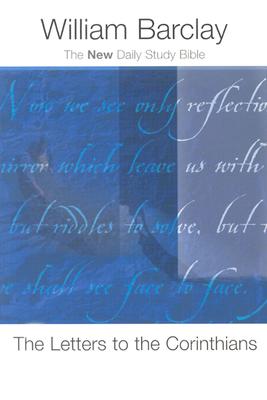 William Barclay
The New Daily Study Bible
Now we see only reflectio
mirror which leave us with
but riddles to solve, but t
we shall see face to face.
The Letters to the Corinthians